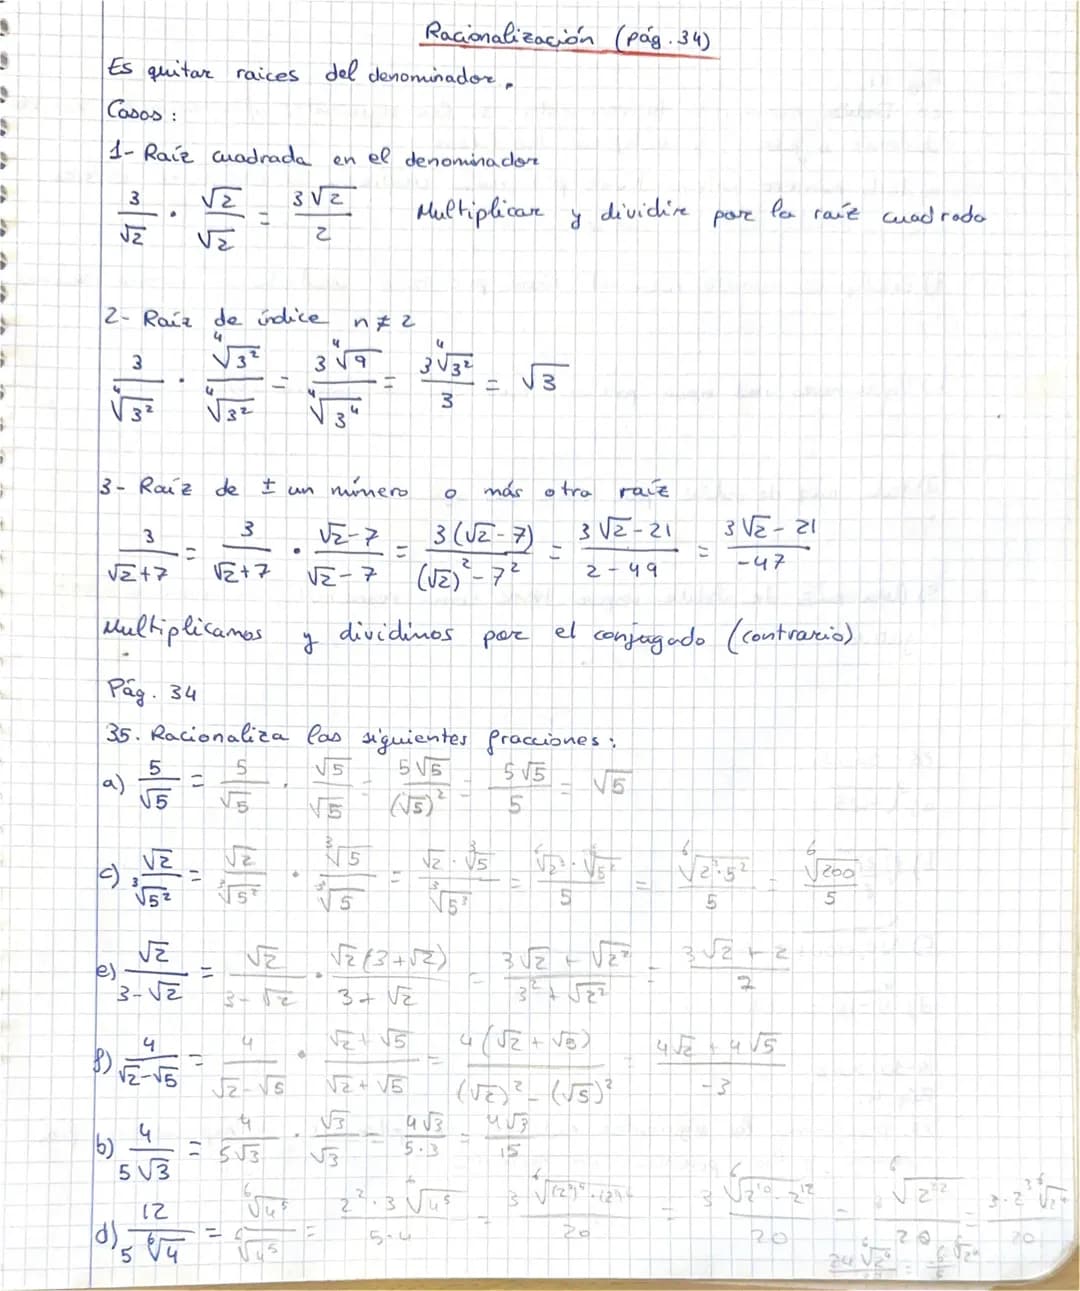 Racionalización (pág. 34)
Es quitar raices del denominador.
Casos:
1- Raíz cuadrada en el denominador
3/√2 · √2/√2 = 3√2/2 Multiplicar y dividir por la raíz cuadrada
2- Raíz de índice n ≠ 2
3/⁴√3² · ⁴√3²/⁴√3² = 3⁴√9/⁴√3⁴ = 3⁴√3²/3 = √3
3- Raíz de ± un número o más otra raíz
3/(√2+7) = 3/(√2+7) · (√2-7)/(√2-7) = 3(√2-7)/((√2)²-7²) = (3√2-21)/(2-49) = (3√2-21)/-47
Multiplicamos y dividimos por el conjugado (contrario)
Pág. 34
35. Racionaliza las siguientes fracciones:
a) 5/√5 = 5/√5 · √5/√5 = 5√5/(√5)² = 5√5/5 = √5
c) √2/³√5² = √2/³√5² · ³√5/³√5 = √2·³√5/³√5³ = ⁶√2³·⁶√5²/5 = ⁶√2³·5²/5 = ⁶√200/5
e) √2/(3-√2) = √2/(3-√2) · √2(3+√2)/(3+√2) = (3√2+√2²)/(3²+√2²) = (3√2+2)/2
f) 4/(√2-√5) = 4/(√2-√5) · (√2+√5)/(√2+√5) = 4(√2+√5)/((√2)²-(√5)²) = (4√2+4√5)/-3
b) 4/5√3 = 4/5√3 · √3/√3 = 4√3/5·3 = 4√3/15
d) 12/5⁶√4 = ⁶√4⁵/⁶√4⁵ = 2²·3⁶√4⁵/5·4